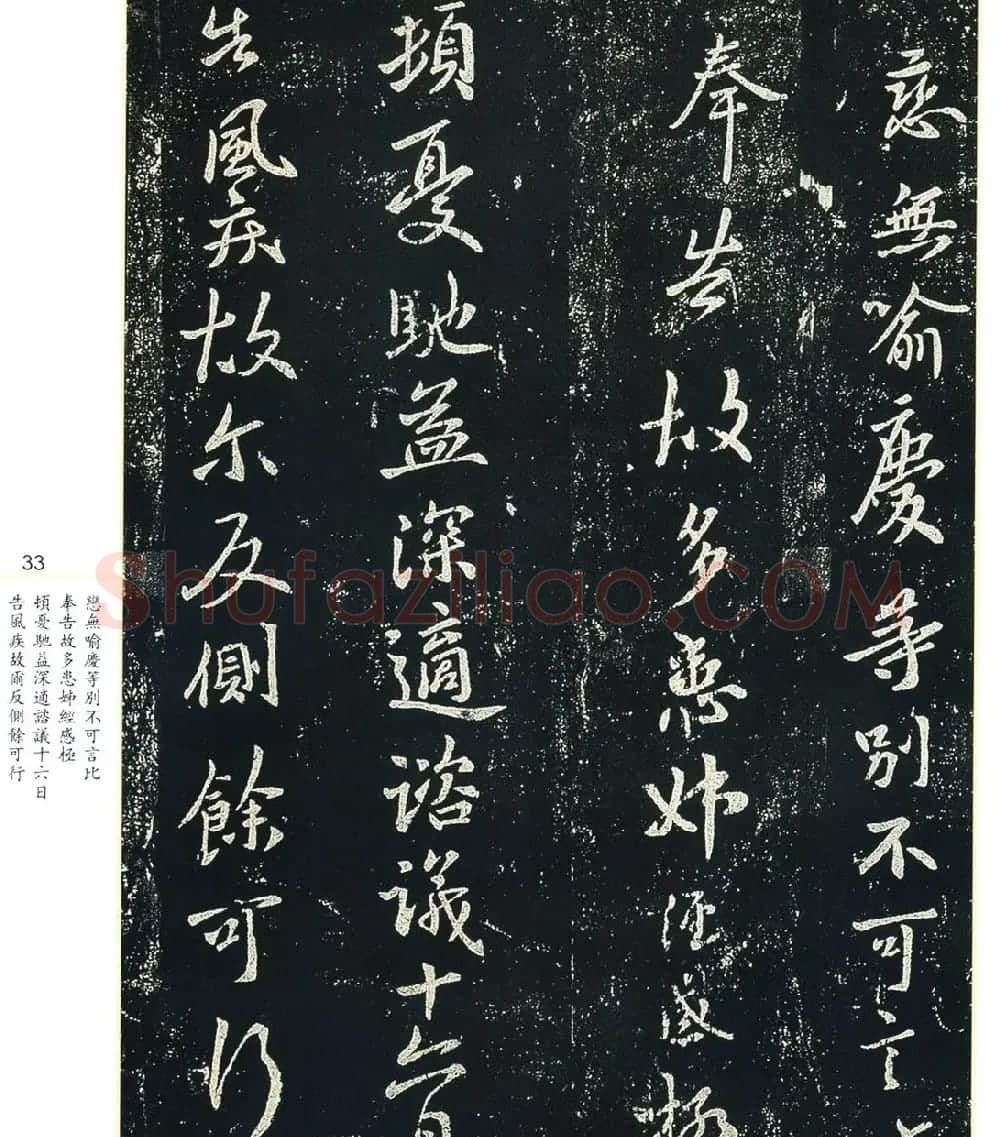 戀無喻慶等別不可言
奉告故多患姊經感極
頓憂馳益深適諮議十六日
告風疾故尔反側餘可行
33
戀無喻慶等別不可言比
奉告故多患姊經感極
頓憂馳益深適諮議十六日
告風疾故爾反側餘可行
Shufaziliao.COM